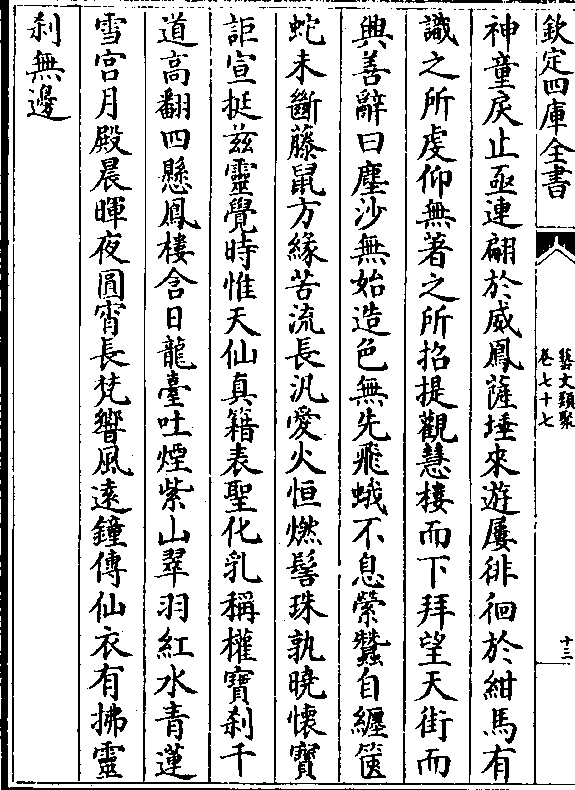 欽定四庫全書
藝文類聚
卷七十七
十三
神童戾止亟連翩於威鳳薩埵來遊屢徘徊於紺馬有
識之所虔仰無著之所招提觀慧樓而下拜望天街而
興善辭曰塵沙無始造色無先飛蛾不息縈蠶自纏篋
蛇未斷藤鼠方緣苦流長汎愛火恒燃髻珠孰曉懷寶
詎宣挺茲靈覺時惟天仙真籍表聖化乳稱權寶刹千
道高翻四懸鳳樓含日龍臺吐煙紫山翠羽紅水青蓮
雪宮月殿晨暉夜圓霄長梵響風遠鐘傳仙衣有拂靈
刹無邊